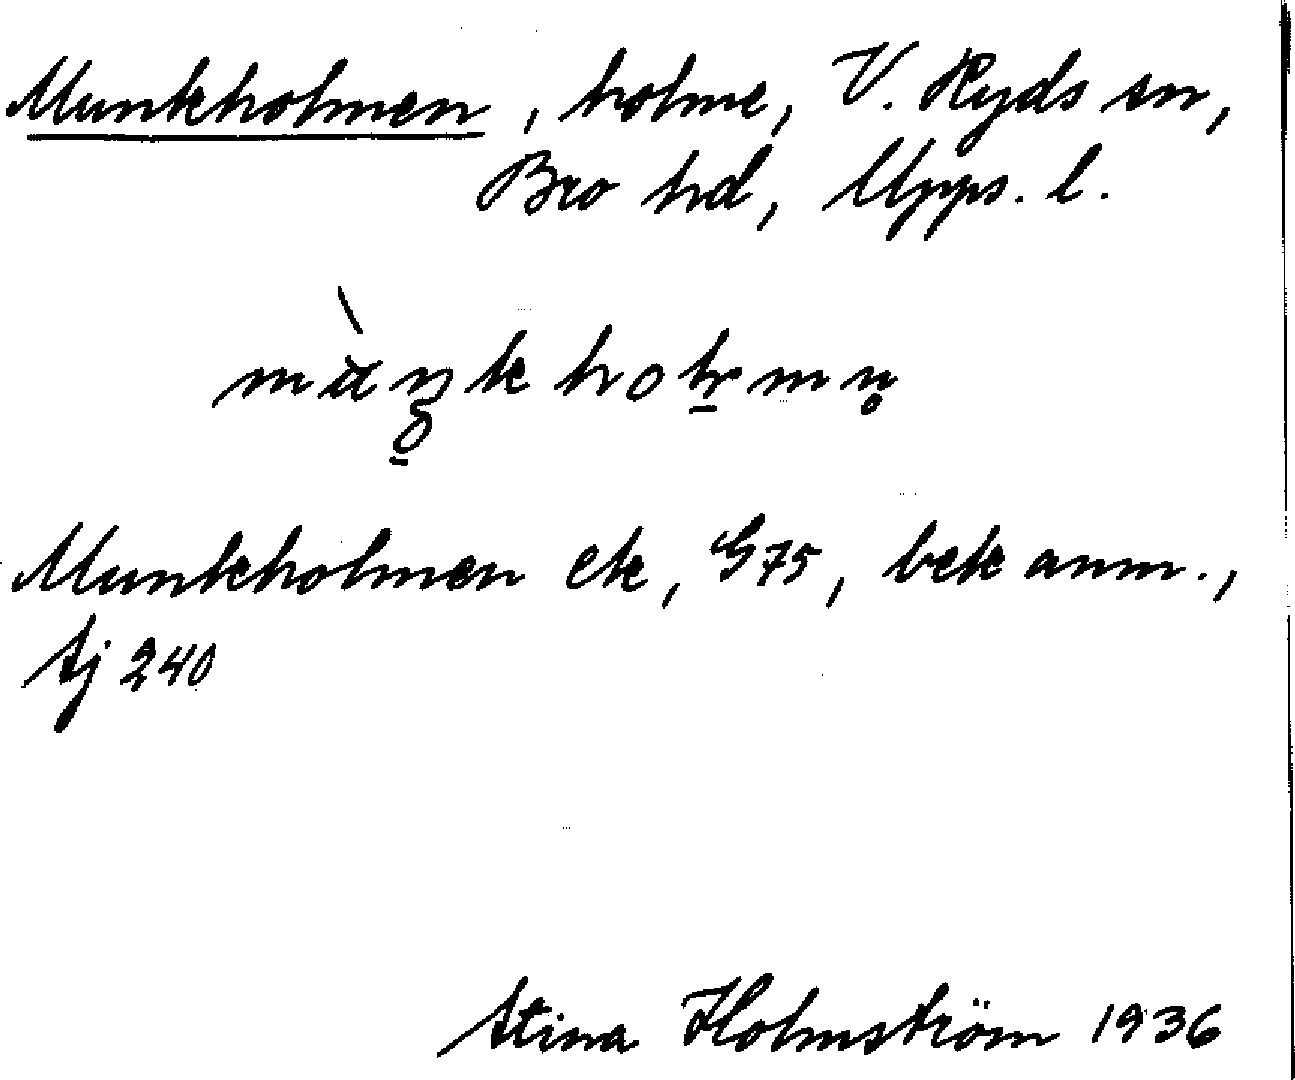 Munkholmen, holme, V. Ryds sn,
Bro hd, Upps. l.
Munkholmen ek, G75, bek anm.,
Sj 240
Stina Holmström 1936